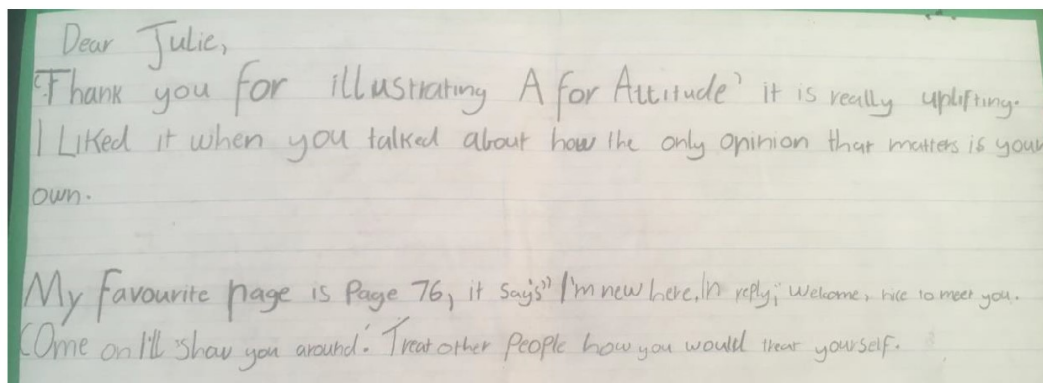 Dear Julie,
'Thank you for illustrating A for Attitude' it is really uplifting.
I Liked it when you talked about how the only opinion that matters is your
own.
My favourite page is Page 76, it say's" I'm new here, In reply; Welcome, nice to meet you.
Come on I'll show you around.' Treat other People how you would treat yourself.